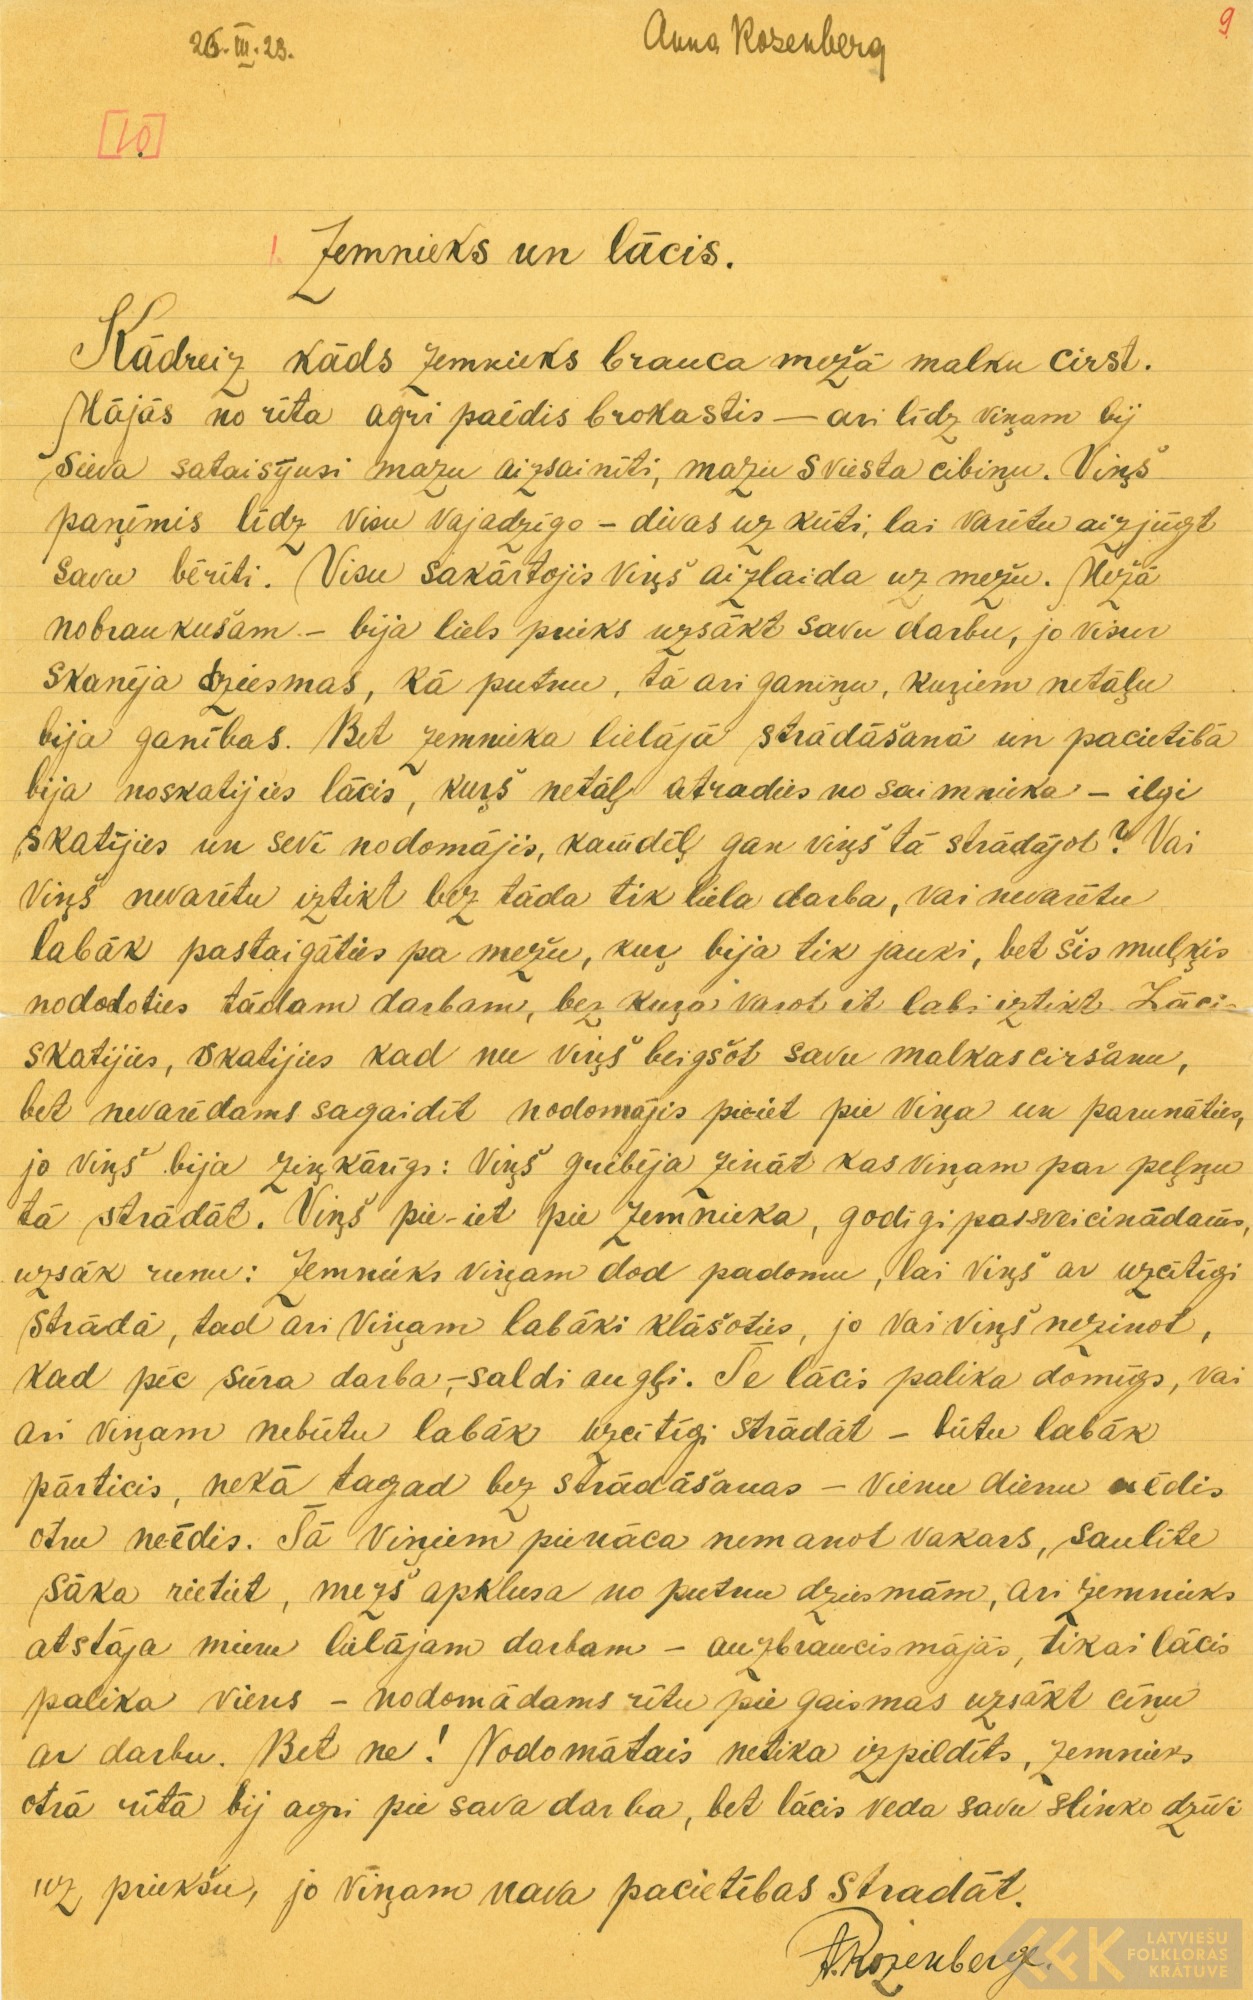 26.III.23.
Anna Rozenberg
9
[10]
1. Zemnieks un lācis.
Kādreiz kāds zemnieks brauca mežā malku cirst.
Mājās no rīta agri paēdis brokastis — ari līdz viņam bij
sieva sataisījusi mazu aizsainīti, mazu sviesta cibiņu. Viņš
paņēmis līdz visu vajadzīgo – divas uz kūti, lai varētu aizjūgt
savu bērīti. Visu sakārtojis viņš aizlaida uz mežu. Mežā
nobraukušam – bija liels prieks uzsākt savu darbu, jo visur
skanēja dziesmas, kā putnu, tā ari ganiņu, kuŗiem netāļu
bija ganības. Bet zemnieka lielājā strādāšanā un pacietībā
bija noskatijies lācis, kuŗš netāļ atradies no saimnieka – ilgi
skatījies un sevī nodomājis, kamdēļ gan viņš tā strādājot? Vai
viņš nevarētu iztikt bez tāda tik liela darba, vai nevarētu
labāk pastaigāties pa mežu, kuŗ bija tik jauki, bet šis muļķis
nododoties tādam darbam, bez kuŗa varot it labi iztikt. Lāci-
skatijies, skatijies kad nu viņš beigšot savu malkas ciršanu,
bet nevarēdams sagaidīt nodomājis pieiet pie viņa un parunāties,
jo viņš bija ziņkārīgs: viņš gribēja zināt kas viņam par peļņu
tā strādāt. Viņš pie-iet pie zemnieka, godīgi pasveicinādams,
uzsāk runu: Zemnieks viņam dod padomu, lai viņš ar uzcītīgi
strādā, tad ari viņam labāki klāšoties, jo vai viņš nezinot,
kad pēc sūra darba,–saldi augļi. Te lācis palika domīgs, vai
ari viņam nebūtu labāk uzcītīgi strādāt – būtu labāk
pārticis, nekā tagad bez strādāšanas – vienu dienu ēdis
otru ne-ēdis. Tā viņiem pienāca nemanot vakars, saulīte
sāka rietiet, mežs apklusa no putnu dziesmām, ari zemnieks
atstāja mieru lielājam darbam – aizbraucis mājās, tikai lācis
palika viens – nodomādams rītu pie gaismas uzsākt cīņu
ar darbu. Bet ne! Nodomātais netika izpildīts, zemnieks
otrā rītā bij agri pie sava darba, bet lācis veda savu slinko dzīvi
uz priekšu, jo viņam nava pacietības stradāt.
A. Rozenberge.
LATVIEŠU
FOLKLORAS
KRĀTUVE